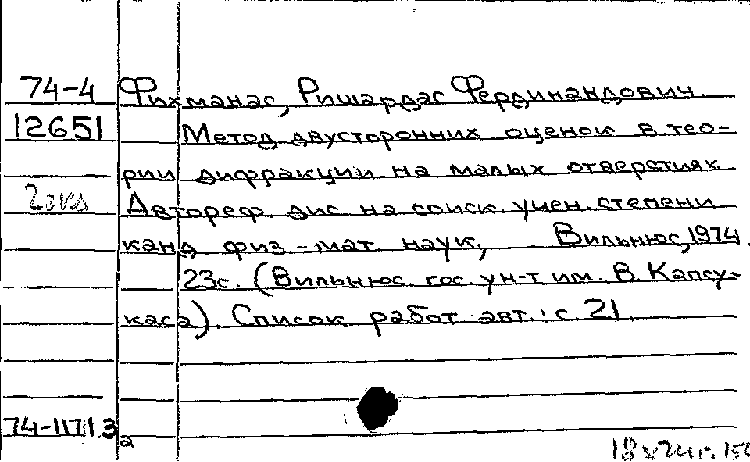 74-4 Фихманас, Ришардас Фердинандович.
12651 Метод двусторонних оценок в тео-
рии дифракции на малых отверстиях.
2 экз Автореф. дис. на соиск. учен. степени
канд. физ.-мат. наук, Вильнюс, 1974.
23с. (Вильнюс. гос. ун-т им. В. Капсу-
каса). Список работ авт.: с. 21.
74-11713